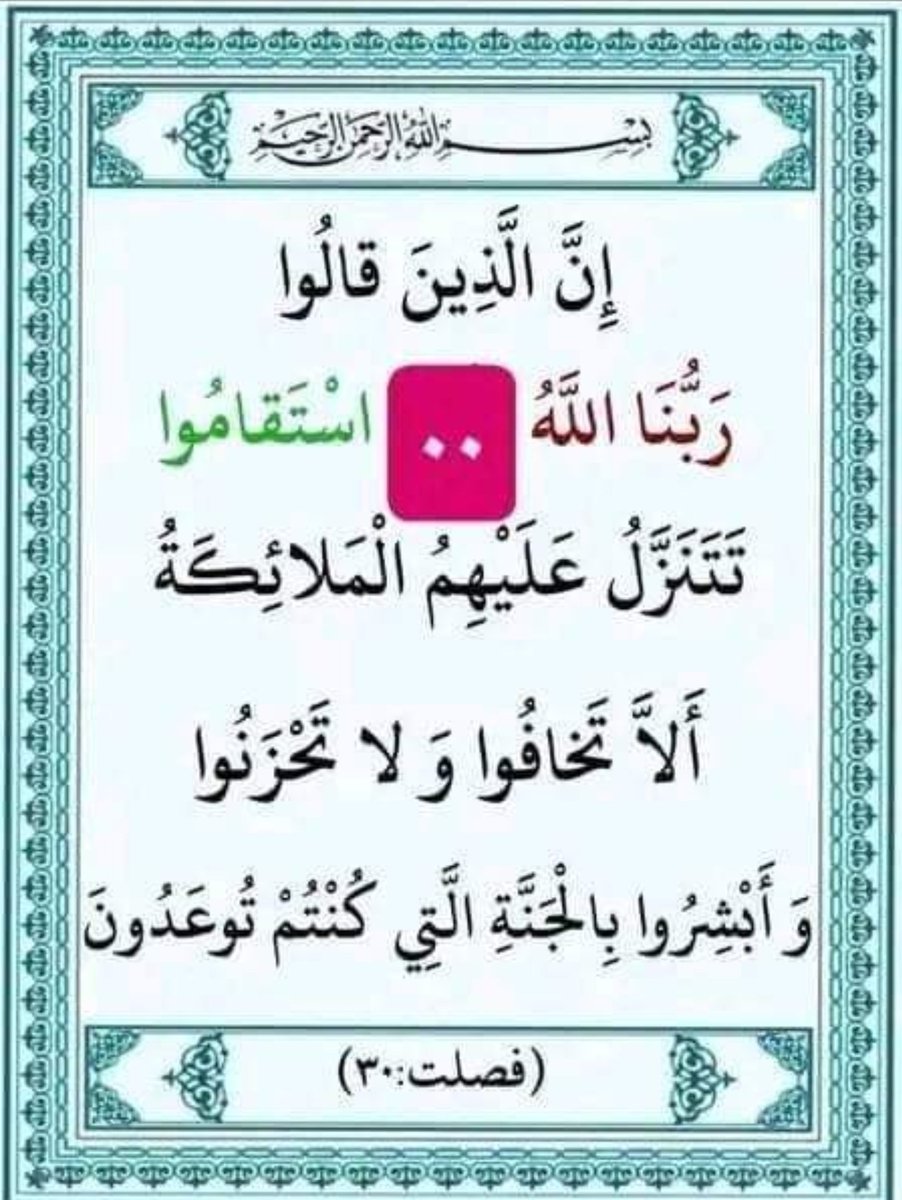 بِسْمِ اللهِ الرَّحْمٰنِ الرَّحِيْمِ
إِنَّ الَّذِينَ قالُوا
رَبُّنَا اللَّهُ .. اسْتَقامُوا
تَتَنَزَّلُ عَلَيْهِمُ الْمَلائِكَةُ
أَلاَّ تَخافُوا وَ لا تَحْزَنُوا
وَ أَبْشِرُوا بِالْجَنَّةِ الَّتِي كُنْتُمْ تُوعَدُونَ
(فصلت:٣٠)